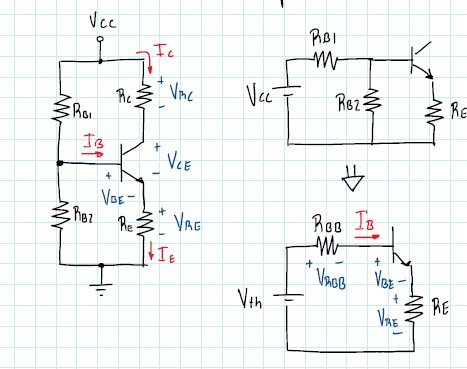 VCC
IC
RB1
RC
+
VRC
-
IB
+
VCE
-
+
VBE -
RB2
RE
+
VRE
-
IE
RB1
VCC
RB2
RE
RBB
IB
+
VRBB
-
Vth
+
VBE -
+
VRE
-
RE